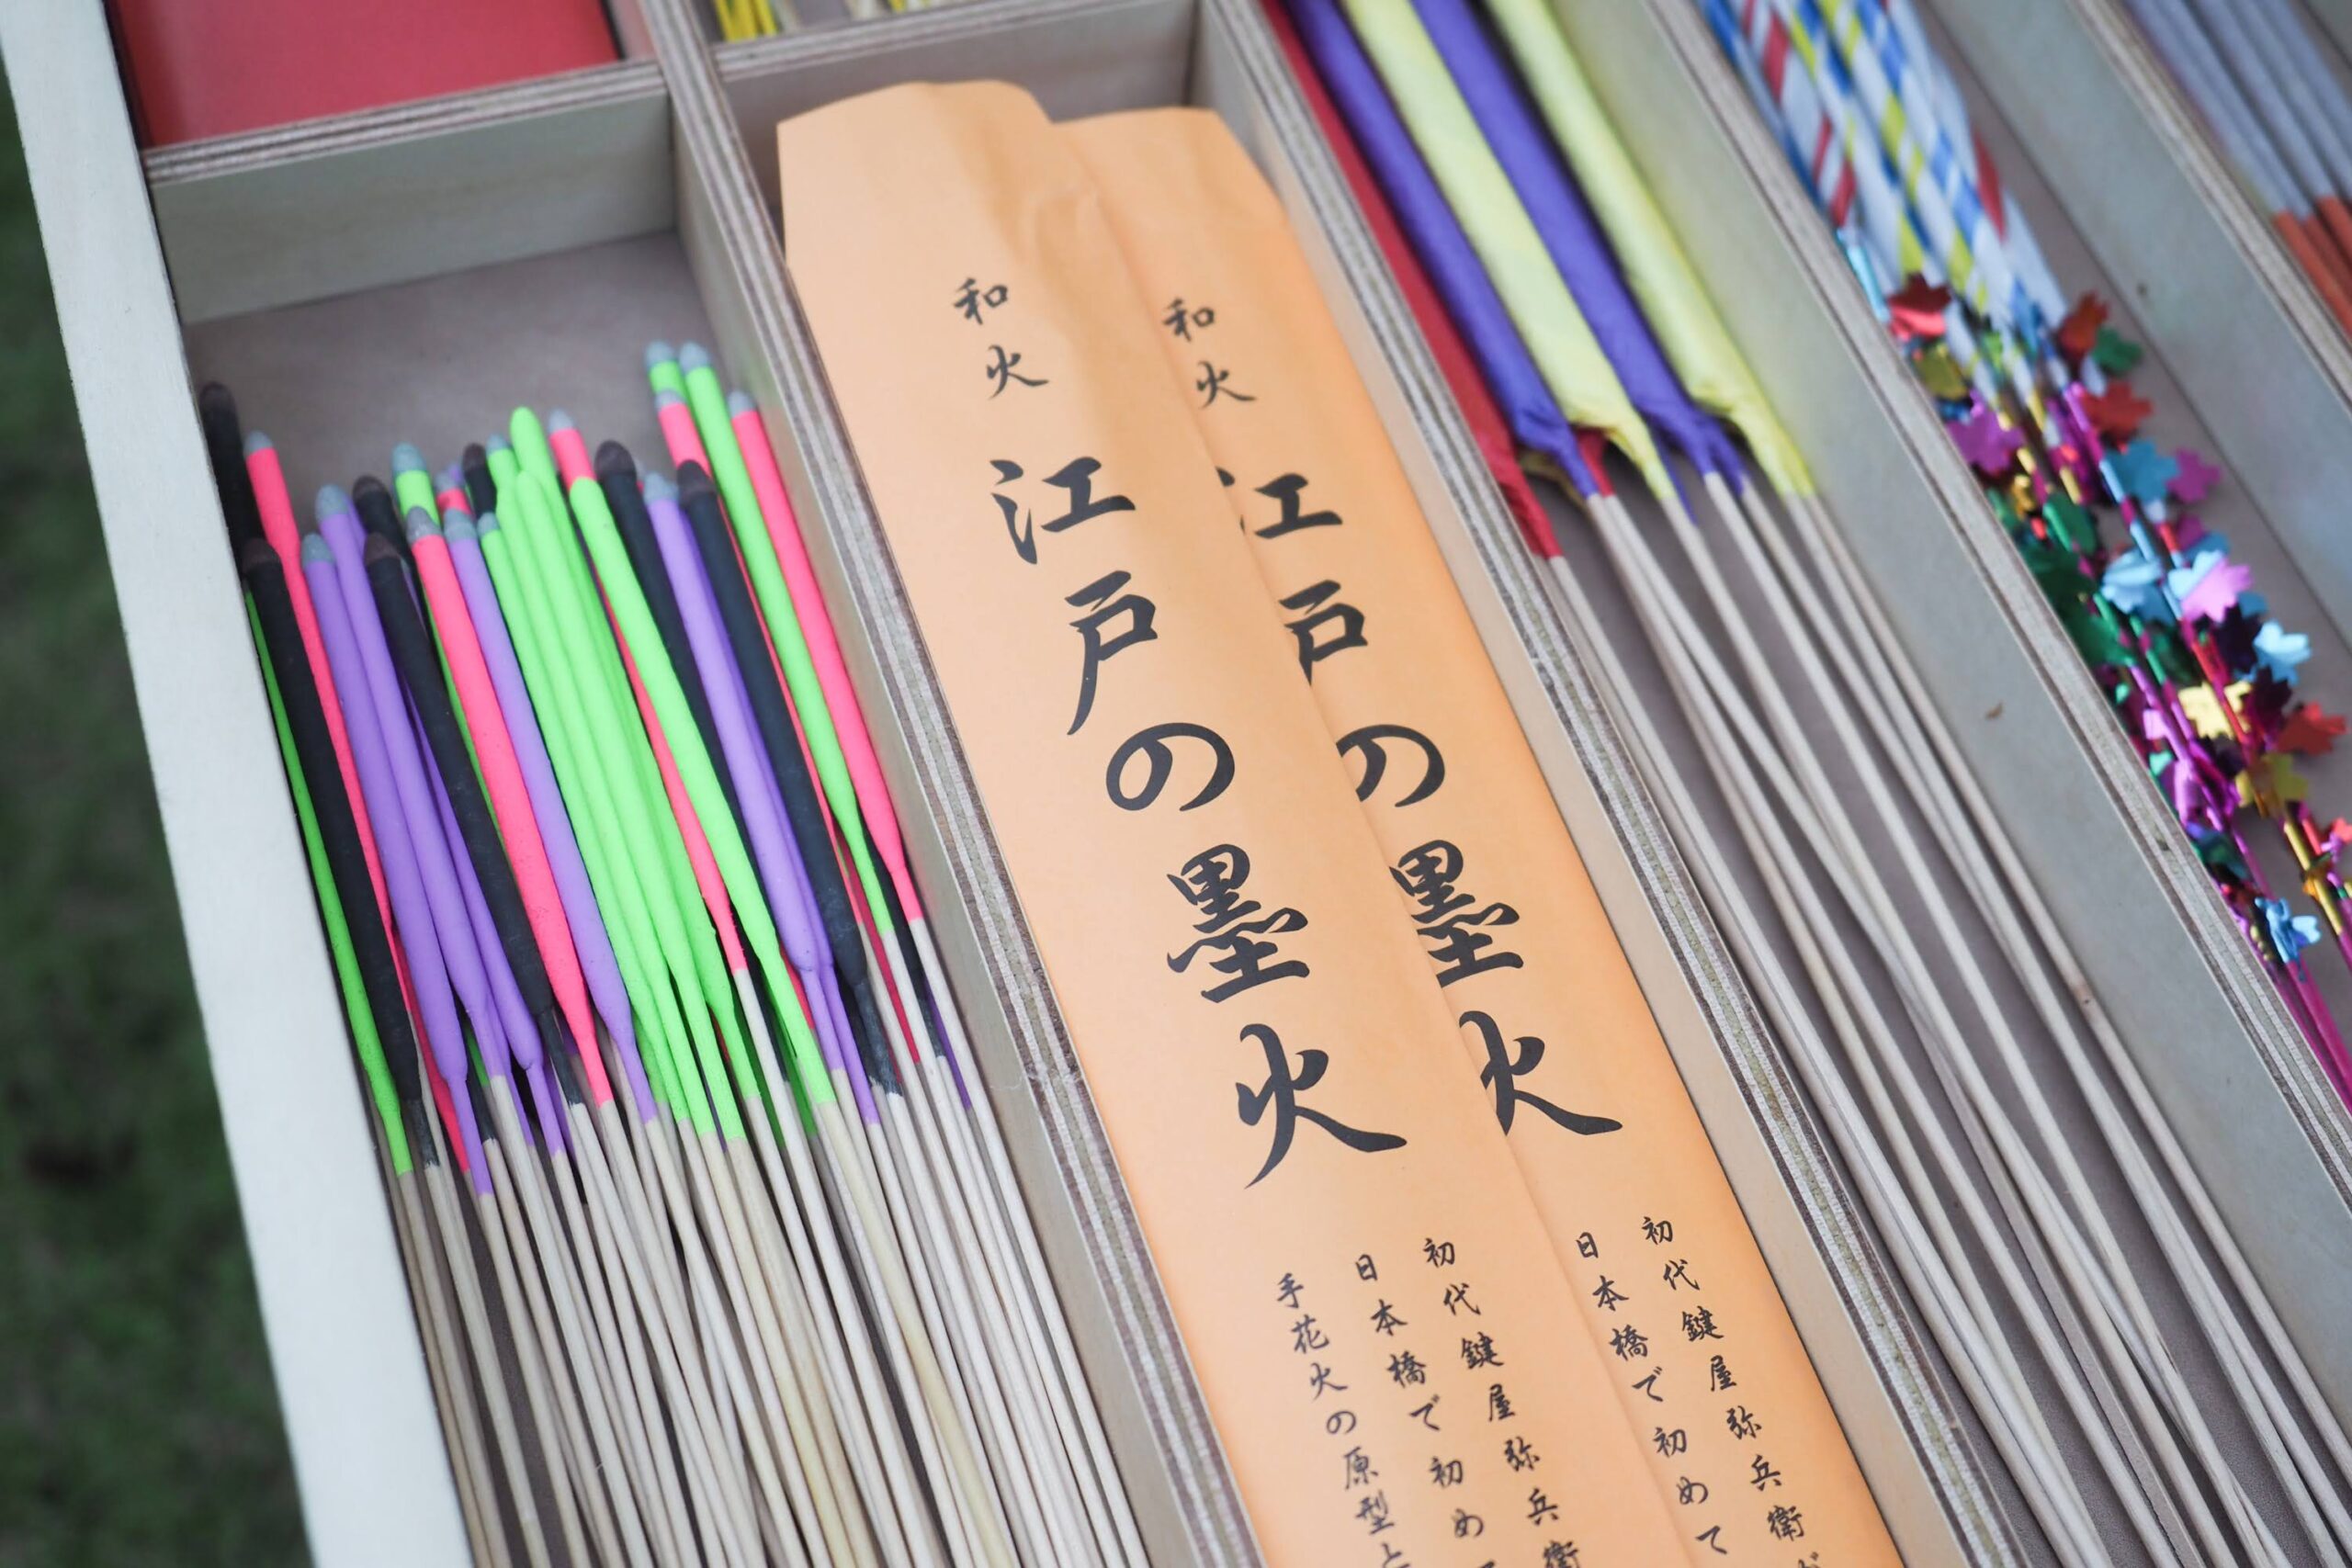 和火
江戸の墨火
初代鍵屋弥兵衛
日本橋で初めて
手花火の原型と
和火
江戸の墨火
初代鍵屋弥兵衛が
日本橋で初めて